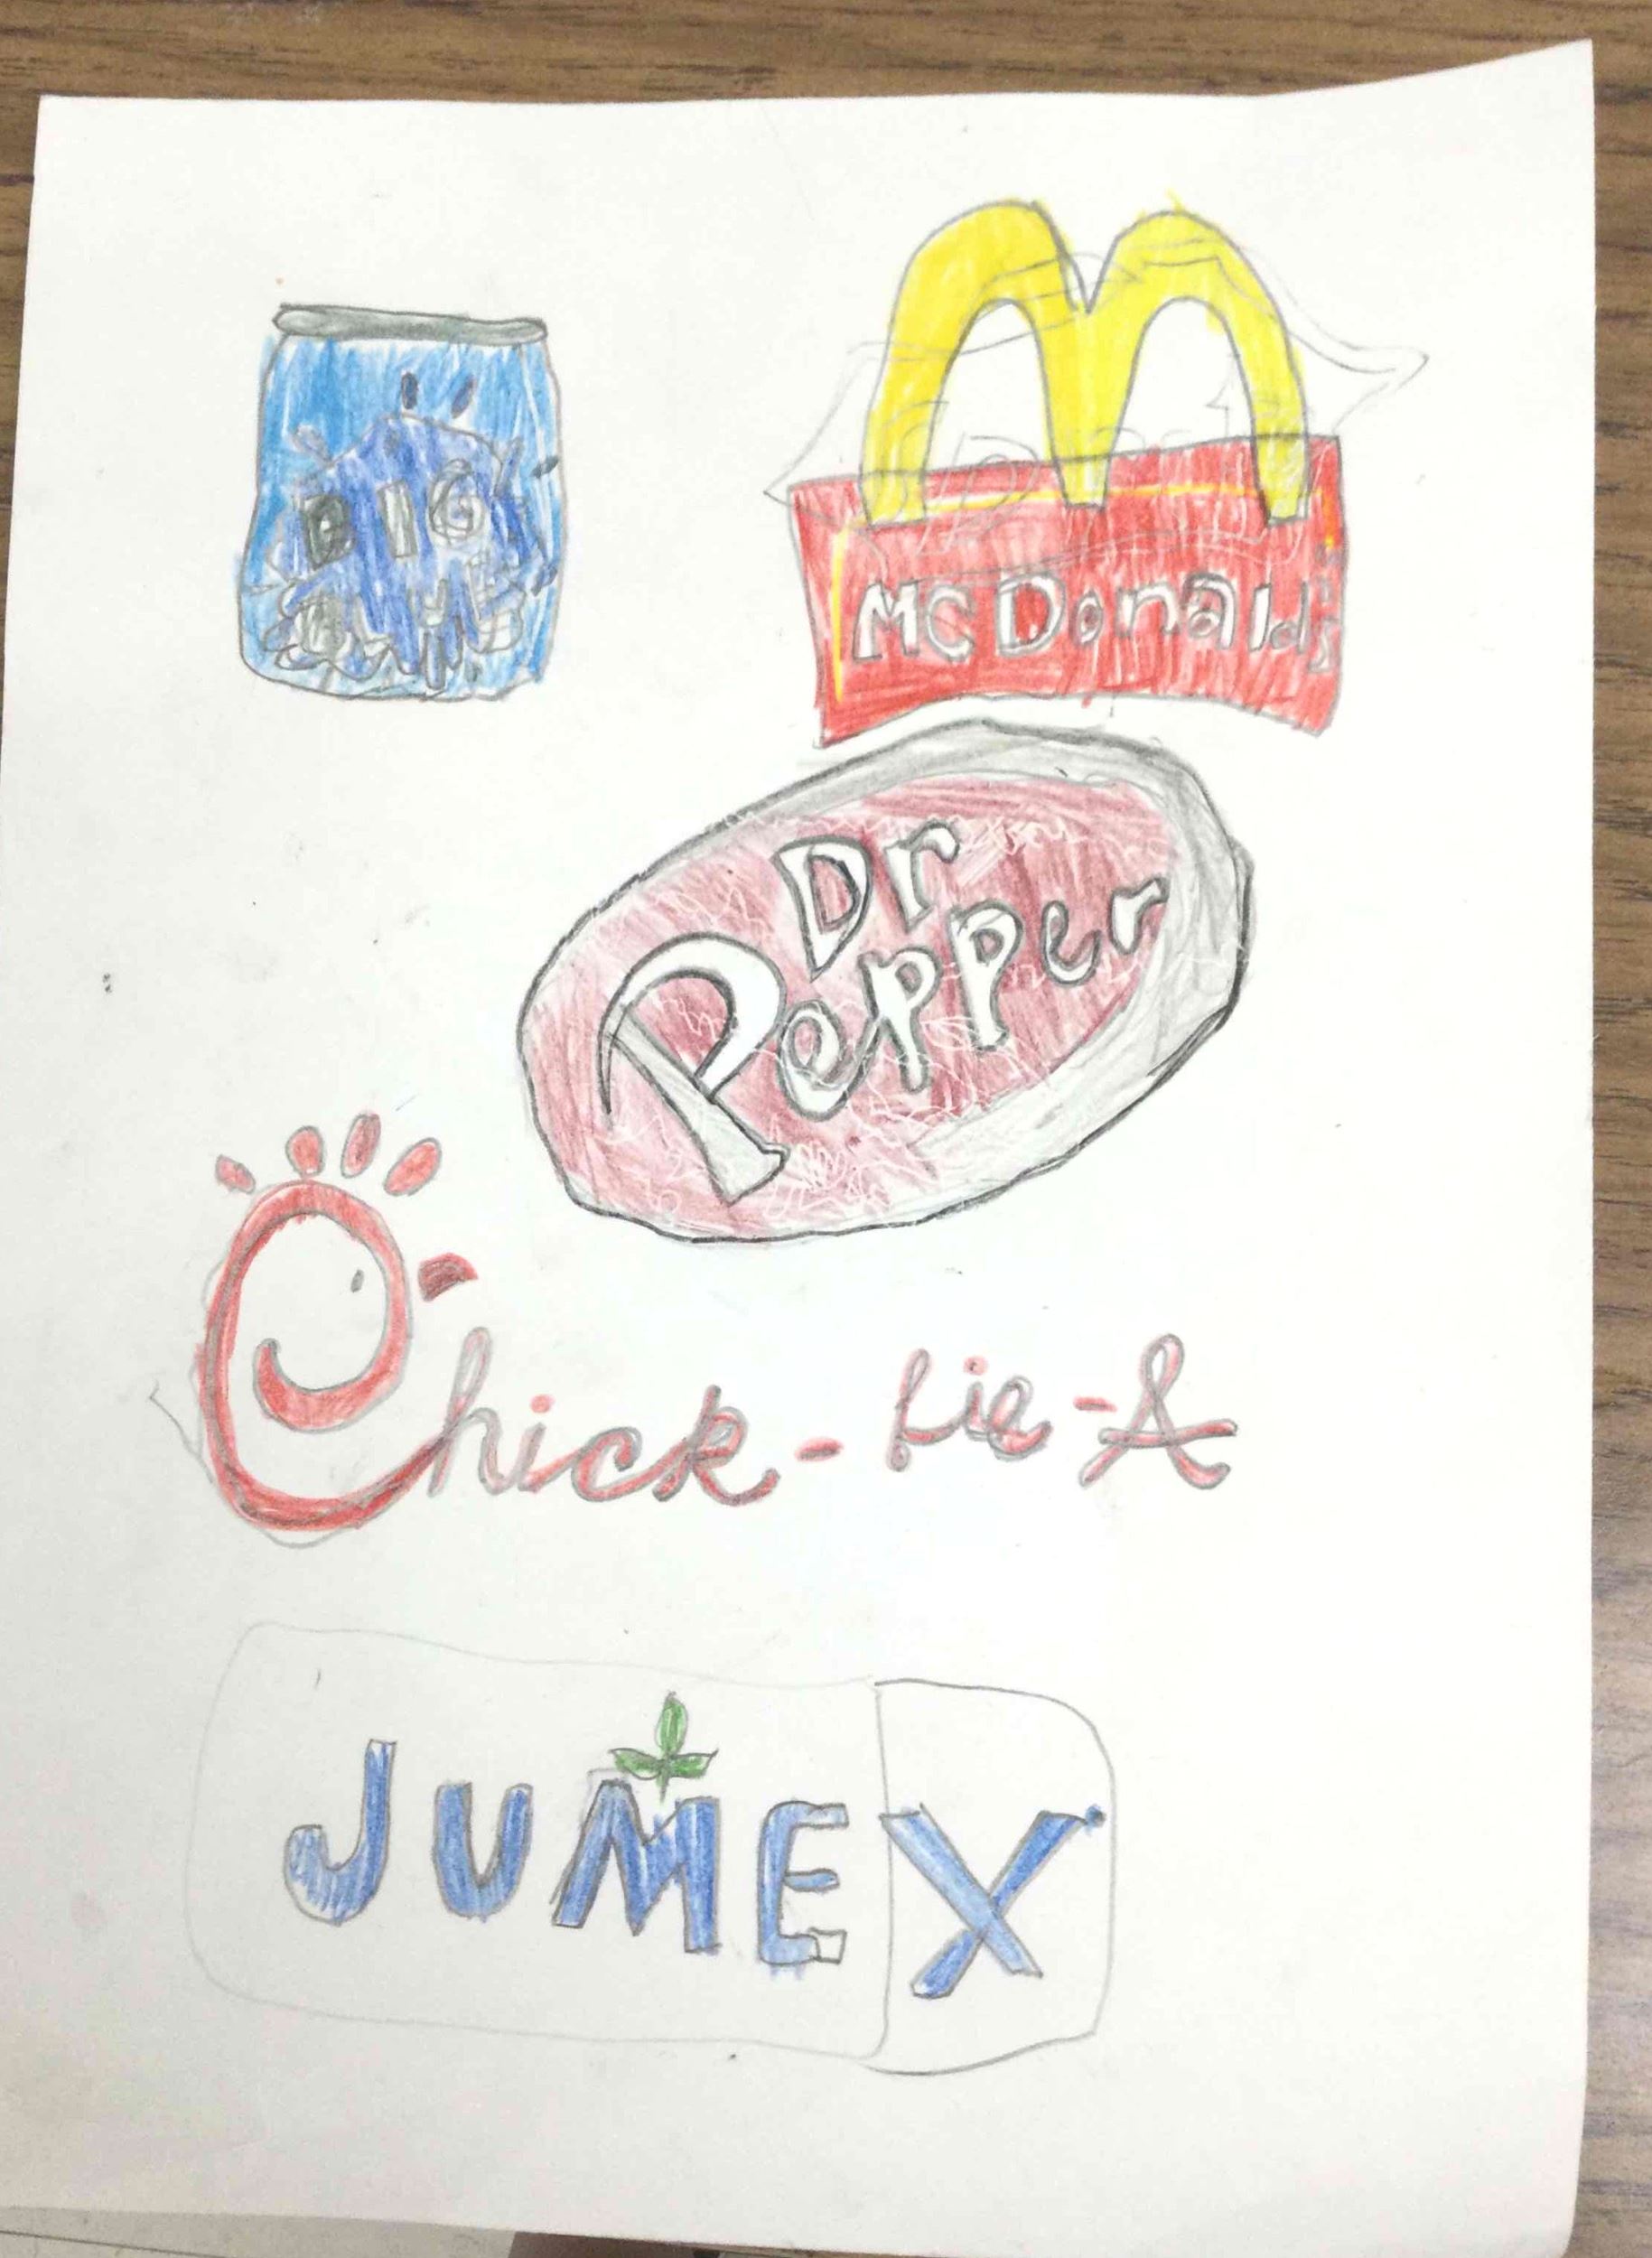 BIG
McDonald's
Dr
Pepper
Chick-fie-A
JUMEX